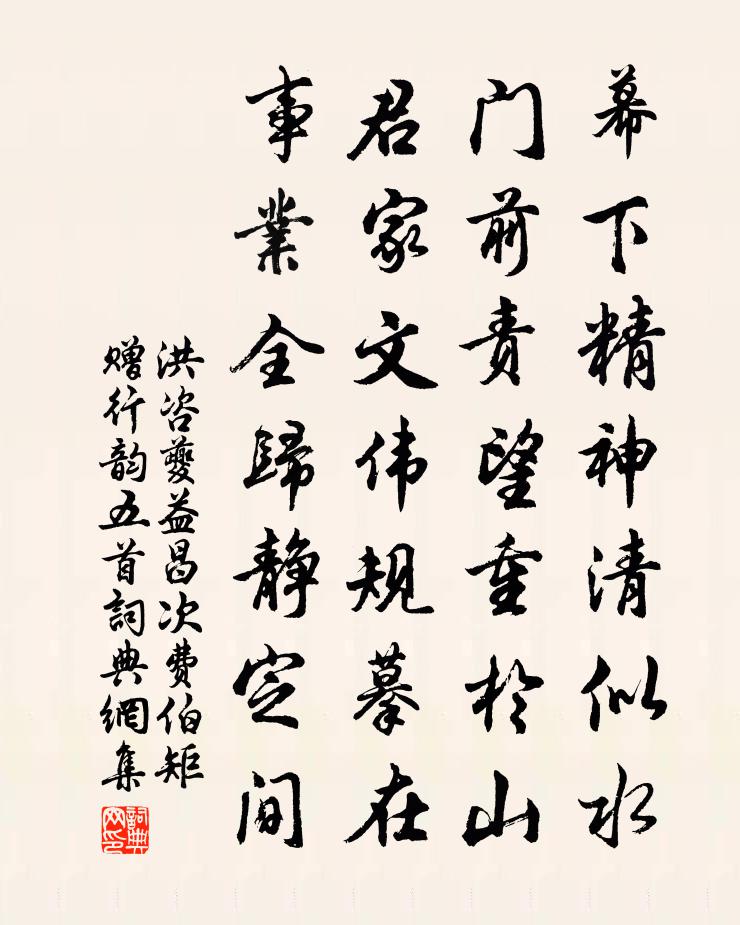 幕下精神清似水
门前责望重於山
君家文伟规摹在
事業全歸静定间
洪咨夔益昌次费伯矩
赠行韵五首詞典網集
詞典网印